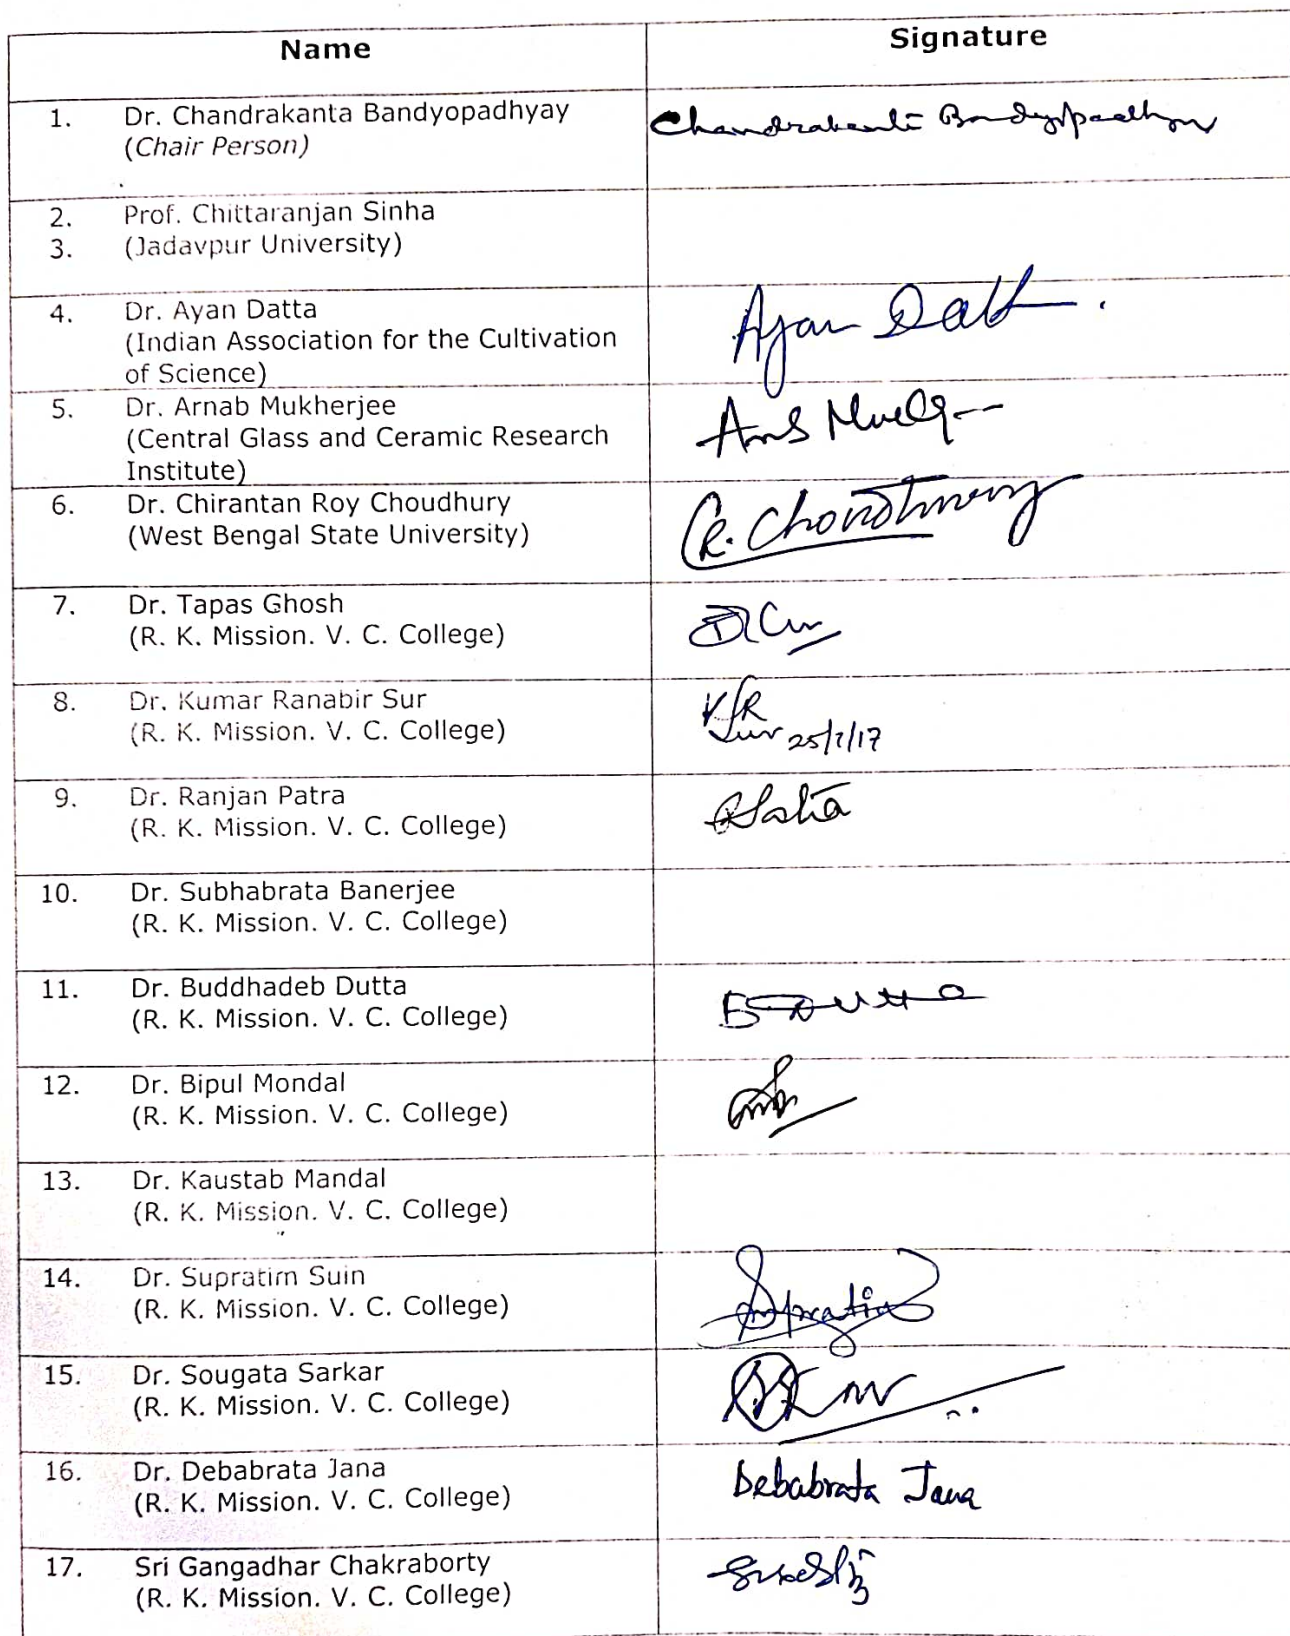 Name Signature
1. Dr. Chandrakanta Bandyopadhyay Chandrakanta Bandyopadhyay
(Chair Person)
2. Prof. Chittaranjan Sinha
3. (Jadavpur University)
4. Dr. Ayan Datta Ayan Datta
(Indian Association for the Cultivation
of Science)
5. Dr. Arnab Mukherjee
(Central Glass and Ceramic Research
Institute)
6. Dr. Chirantan Roy Choudhury CR. Choudhury
(West Bengal State University)
7. Dr. Tapas Ghosh
(R. K. Mission. V. C. College)
8. Dr. Kumar Ranabir Sur KR
(R. K. Mission. V. C. College) Sur 25/7/17
9. Dr. Ranjan Patra RPatra
(R. K. Mission. V. C. College)
10. Dr. Subhabrata Banerjee
(R. K. Mission. V. C. College)
11. Dr. Buddhadeb Dutta B Dutta
(R. K. Mission. V. C. College)
12. Dr. Bipul Mondal
(R. K. Mission. V. C. College)
13. Dr. Kaustab Mandal
(R. K. Mission. V. C. College)
14. Dr. Supratim Suin Supratim
(R. K. Mission. V. C. College)
15. Dr. Sougata Sarkar
(R. K. Mission. V. C. College)
16. Dr. Debabrata Jana Debabrata Jana
(R. K. Mission. V. C. College)
17. Sri Gangadhar Chakraborty
(R. K. Mission. V. C. College)